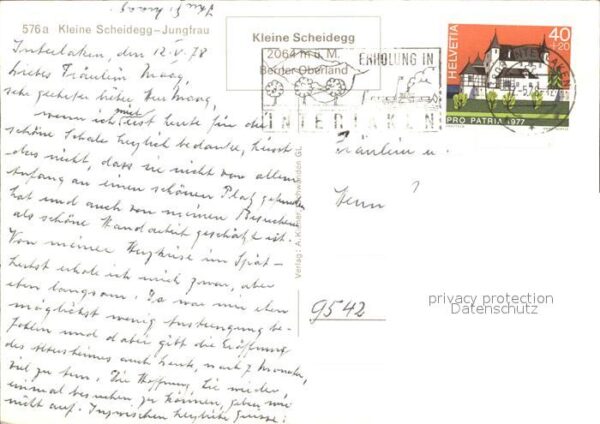 576a Kleine Scheidegg-Jungfrau
Kleine Scheidegg
2064 m ü. M.
Berner Oberland
ERHOLUNG IN
INTERLAKEN
HELVETIA
40
+20
PRO PATRIA 1977
Interlaken, den 12.V.78
Liebes Fräulein
sehr geehrter lieber Herr
wenn ich erst heute für die
schöne Schale herzlich bedanke, heisst
dies nicht, dass sie nicht vor allem
Anfang an einen schönen Platz gefunden
hat und auch von meinen Besuchern
als schöne Handarbeit geschätzt ist.
Von meiner Herzkrise im Spät-
herbst erhole ich mich zwar, aber
eben langsam! Da war mir eben
möglichst wenig Anstrengung be-
fohlen und dabei gibt die Eröffnung
des Altersheimes auch heute, nach 7 Monaten,
viel zu tun. Die Hoffnung, Sie wieder
einmal besuchen zu können, geben wir
nicht auf. Inzwischen herzliche Grüsse!
Fräulein u.
Herrn
9542
privacy protection
Datenschutz